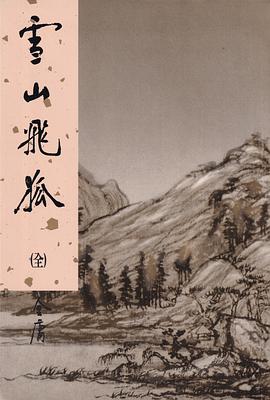 雪山飛狐
(全)
金庸